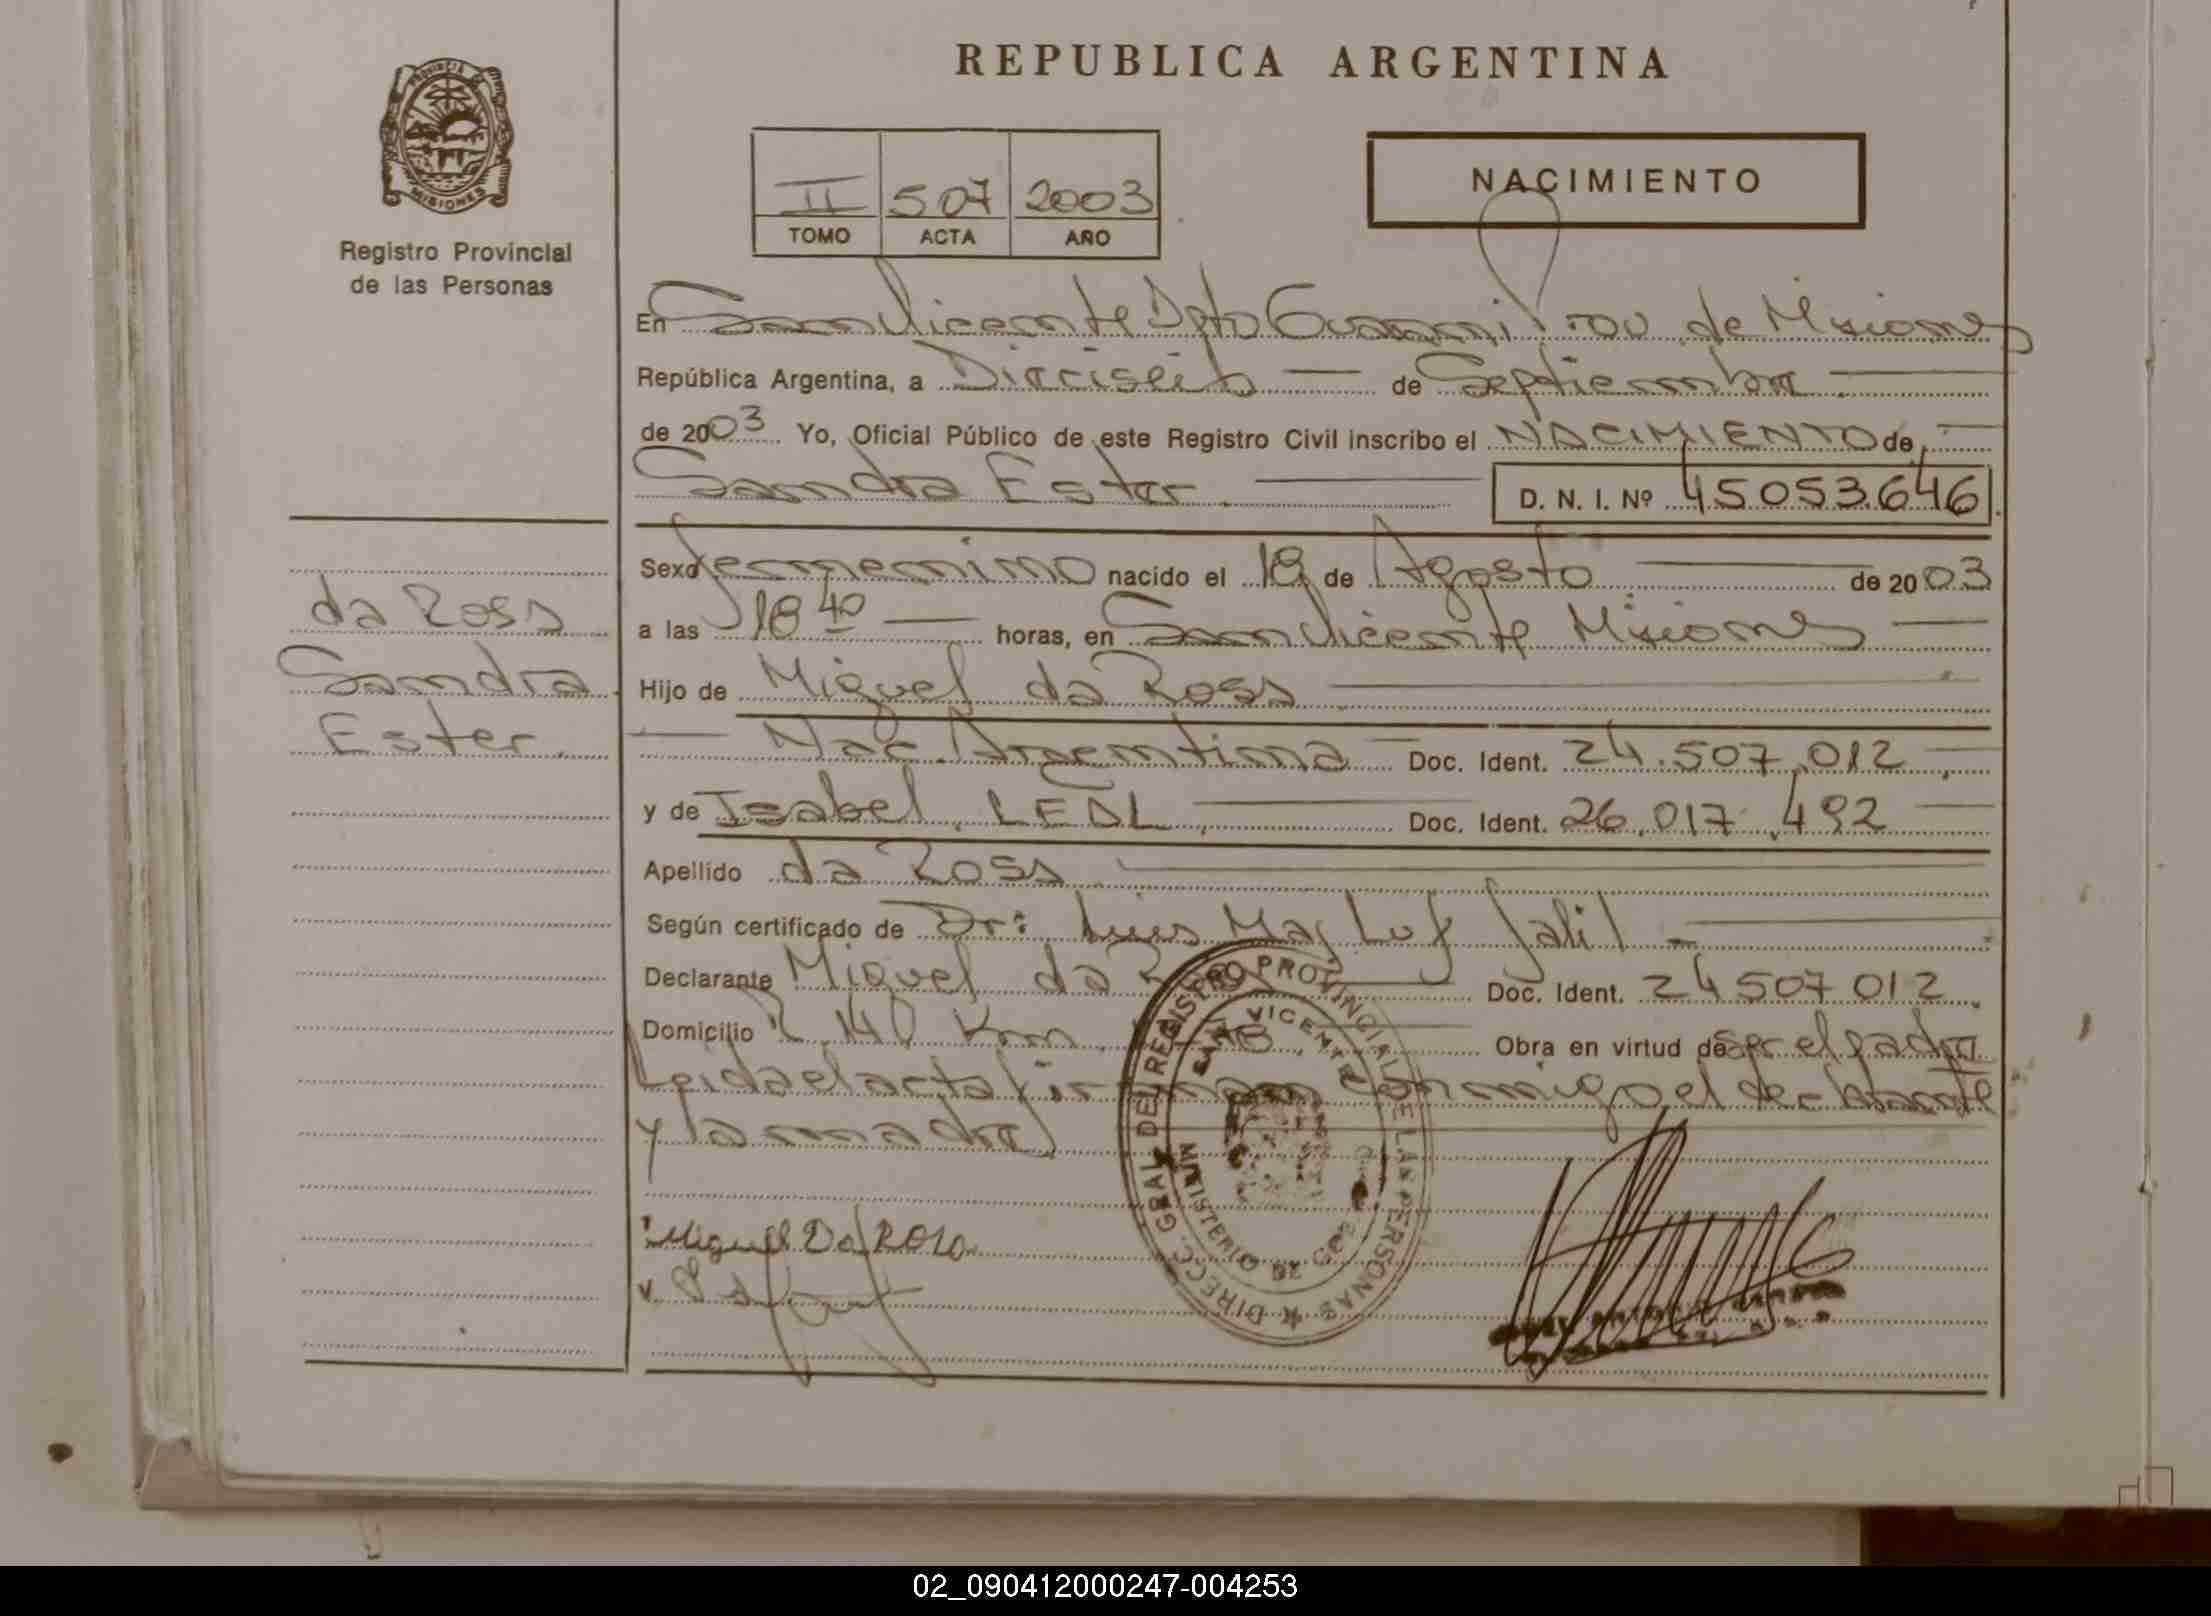 REPUBLICA ARGENTINA
PROVINCIA DE MISIONES
Registro Provincial
de las Personas
II 507 2003
TOMO ACTA AÑO
NACIMIENTO
En San Vicente Dpto Guarani Prov. de Misiones
República Argentina, a Dieciséis de Septiembre
de 2003 Yo, Oficial Público de este Registro Civil inscribo el NACIMIENTO de
Sandra Ester D. N. I. Nº 45053.646
Sexo femenino nacido el 19 de Agosto de 2003
a las 18 40 horas, en San Vicente Misiones
Hijo de Miguel da Rosa
Nac. Argentina Doc. Ident. 24.507.012
y de Isabel LEAL Doc. Ident. 26.017.492
Apellido da Rosa
Según certificado de Dr: Luis Maj Luf Jalil
Declarante Miguel da Rosa Doc. Ident. 24 507 012
Domicilio R. 14 Km. Obra en virtud de ser el padre
Leida el acta firman conmigo el declarante
y la madre
da Rosa
Sandra
Ester.
Miguel Da Rosa
DIRECC. GRAL. DEL REGISTRO PROVINCIAL DE LAS PERSONAS
SAN VICENTE
MINISTERIO DE GOB.
02_090412000247-004253